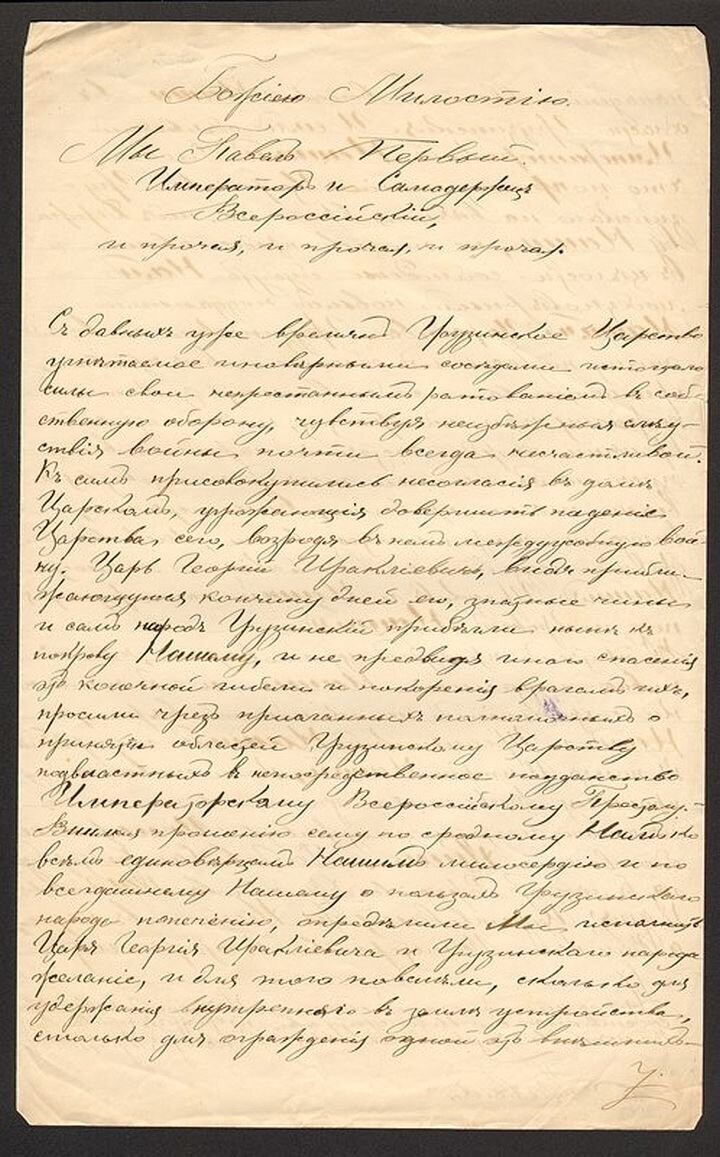 Божіею Милостію.
Мы Павелъ Первый.
Императоръ и Самодержецъ
Всероссійскій,
и прочая, и прочая, и прочая.
Съ давныхъ уже времянъ Грузинское Царство
угнѣтаемое иновѣрными сосѣдами истощало
силы свои непрестаннымъ ратованіемъ въ соб-
ственную оборону, чувствуя неизбѣжныя слѣд-
ствія войны почти всегда несчастливой.
Къ симъ присовокупились несогласія въ домѣ
Царскомъ, угрожающія довершить паденіе
Царства сего, возродя въ немъ междуусобную вой-
ну. Царь Георгій Иракліевичъ, видя прибли-
жающуюся кончину дней его, знатные чины
и самъ народъ Грузинскій прибѣгли нынѣ къ
покрову Нашему, и не предвидя инаго спасенія
отъ конечной гибели и покоренія врагамъ ихъ,
просили чрезъ присланныхъ полномочныхъ о
принятіи областей Грузинскому Царству
подвластныхъ въ непосредственное подданство
Императорскому Всероссійскому Престолу.-
Внимая прошенію сему по сродному Намъ ко
всѣмъ единовѣрцамъ Нашимъ милосердію и по
всегдашнему Нашему о пользахъ Грузинскаго
народа попеченію, опредѣлили Мы исполнить
Царя Георгія Иракліевича и Грузинскаго народа
желаніе, и для того повелѣли, сколько для
удержанія внутренняго въ землѣ устройства,
столько для огражденія одной отъ внѣшнихъ